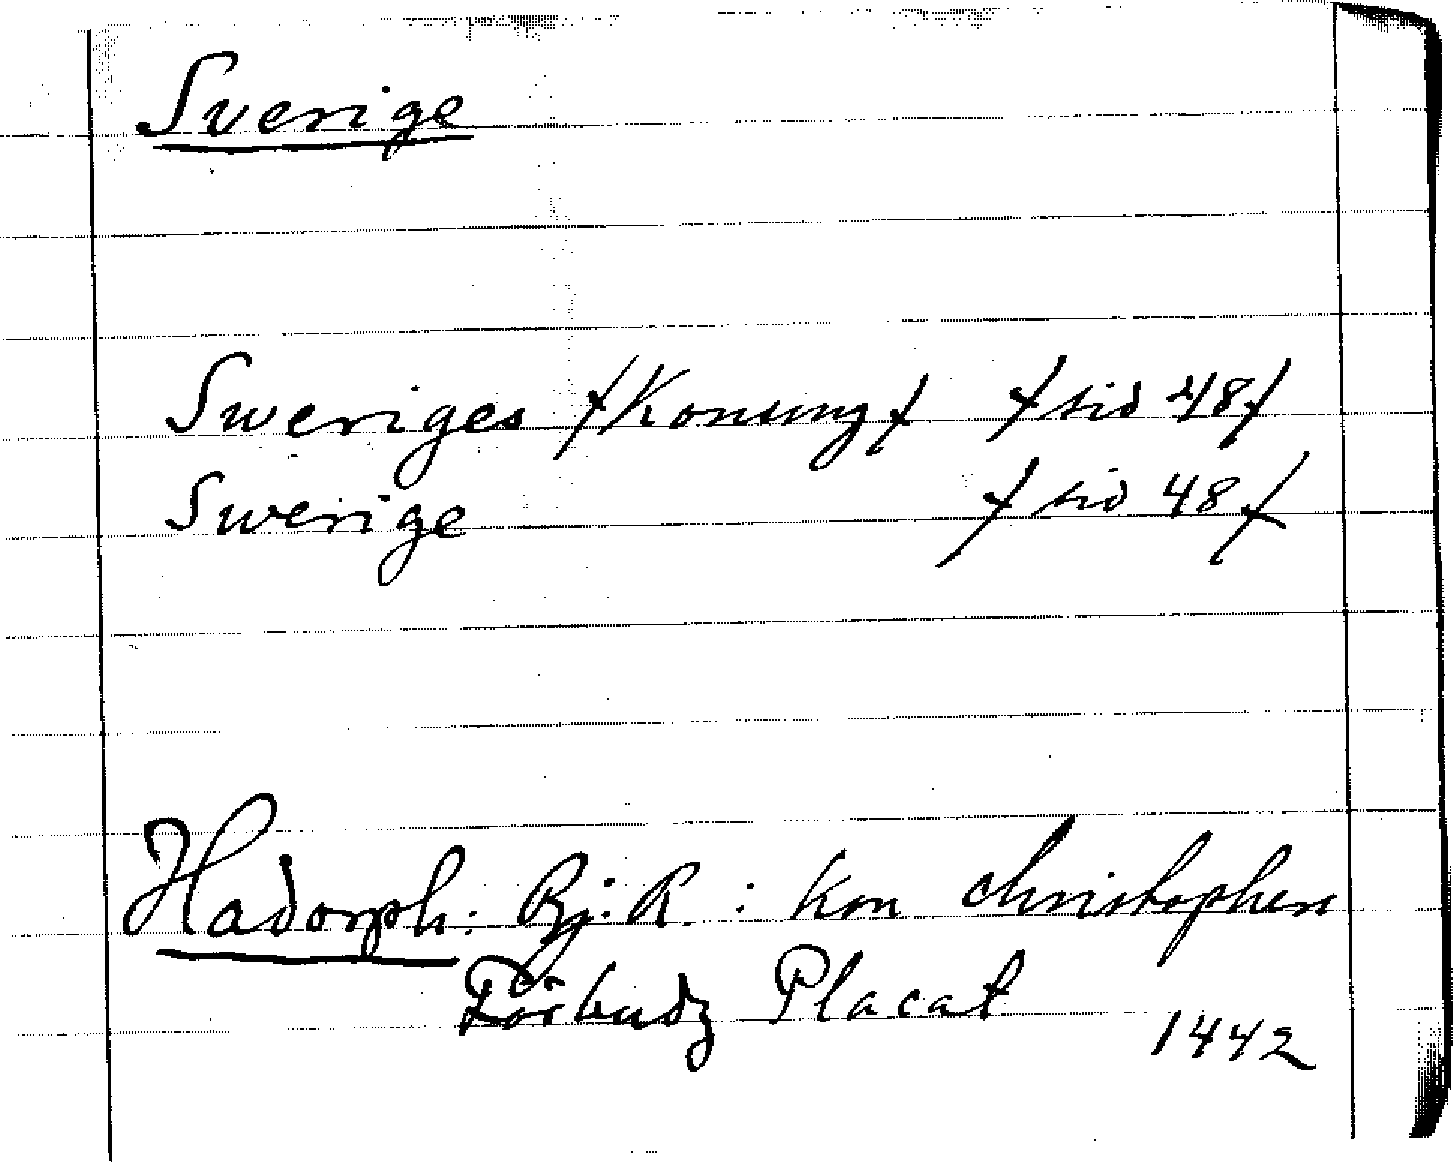 Sverige
Sweriges /Konung/ /sid 48/
Swerige /sid 48/
Hadorph: Bj. R. : Kon Christophers
Förbudz Placat
1442